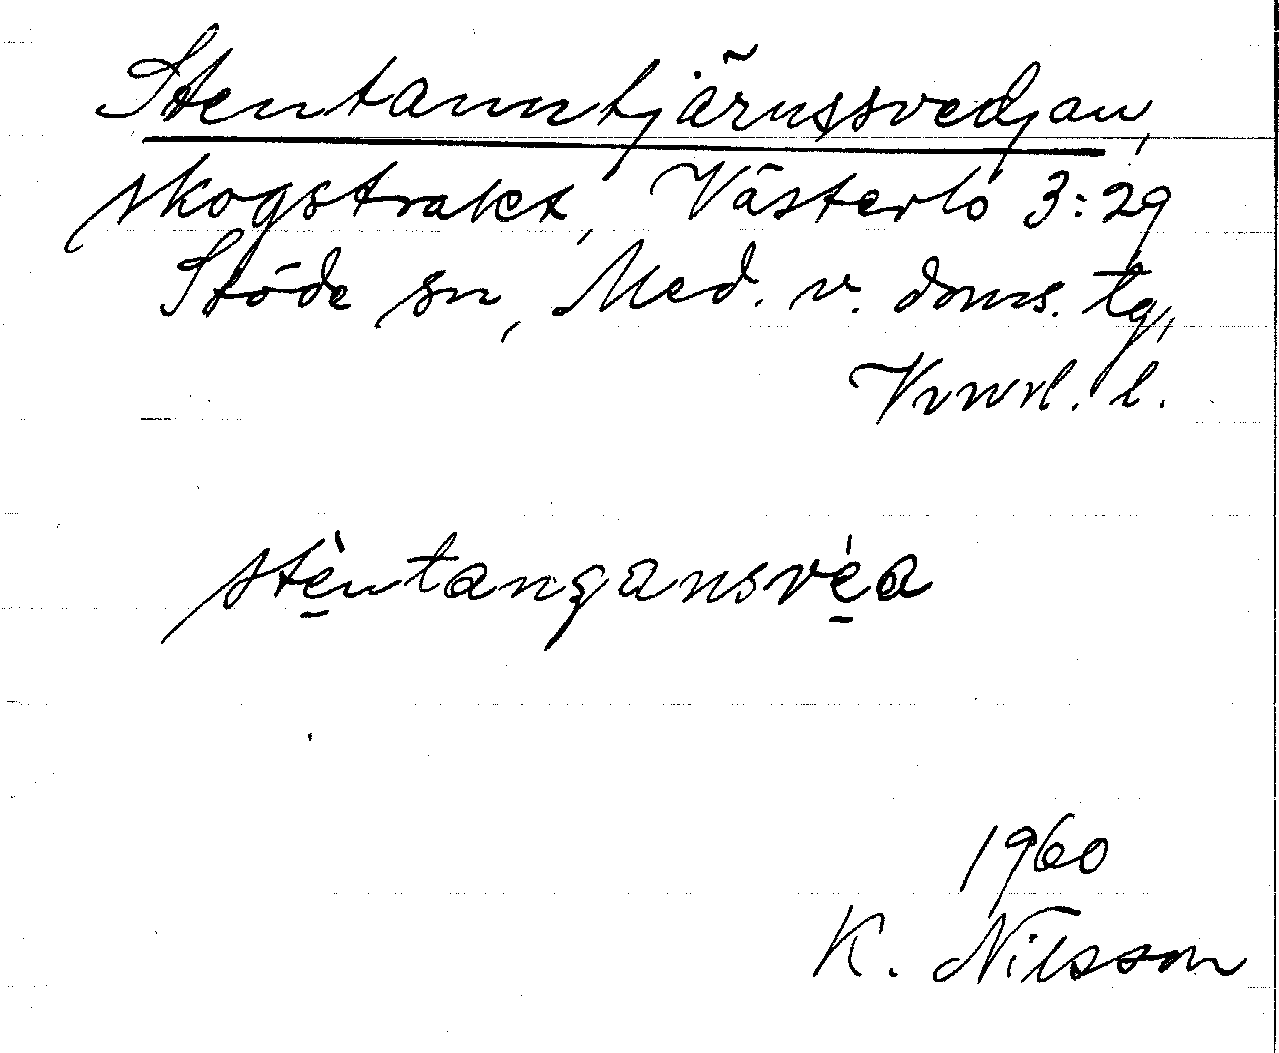 Stentanntjärnssvedjan,
skogstrakt, Västerlo 3:29
Stöde sn, Med. v. doms. tg,
Vrnrl. l.
stèntangansvéa
1960
K. Nilsson